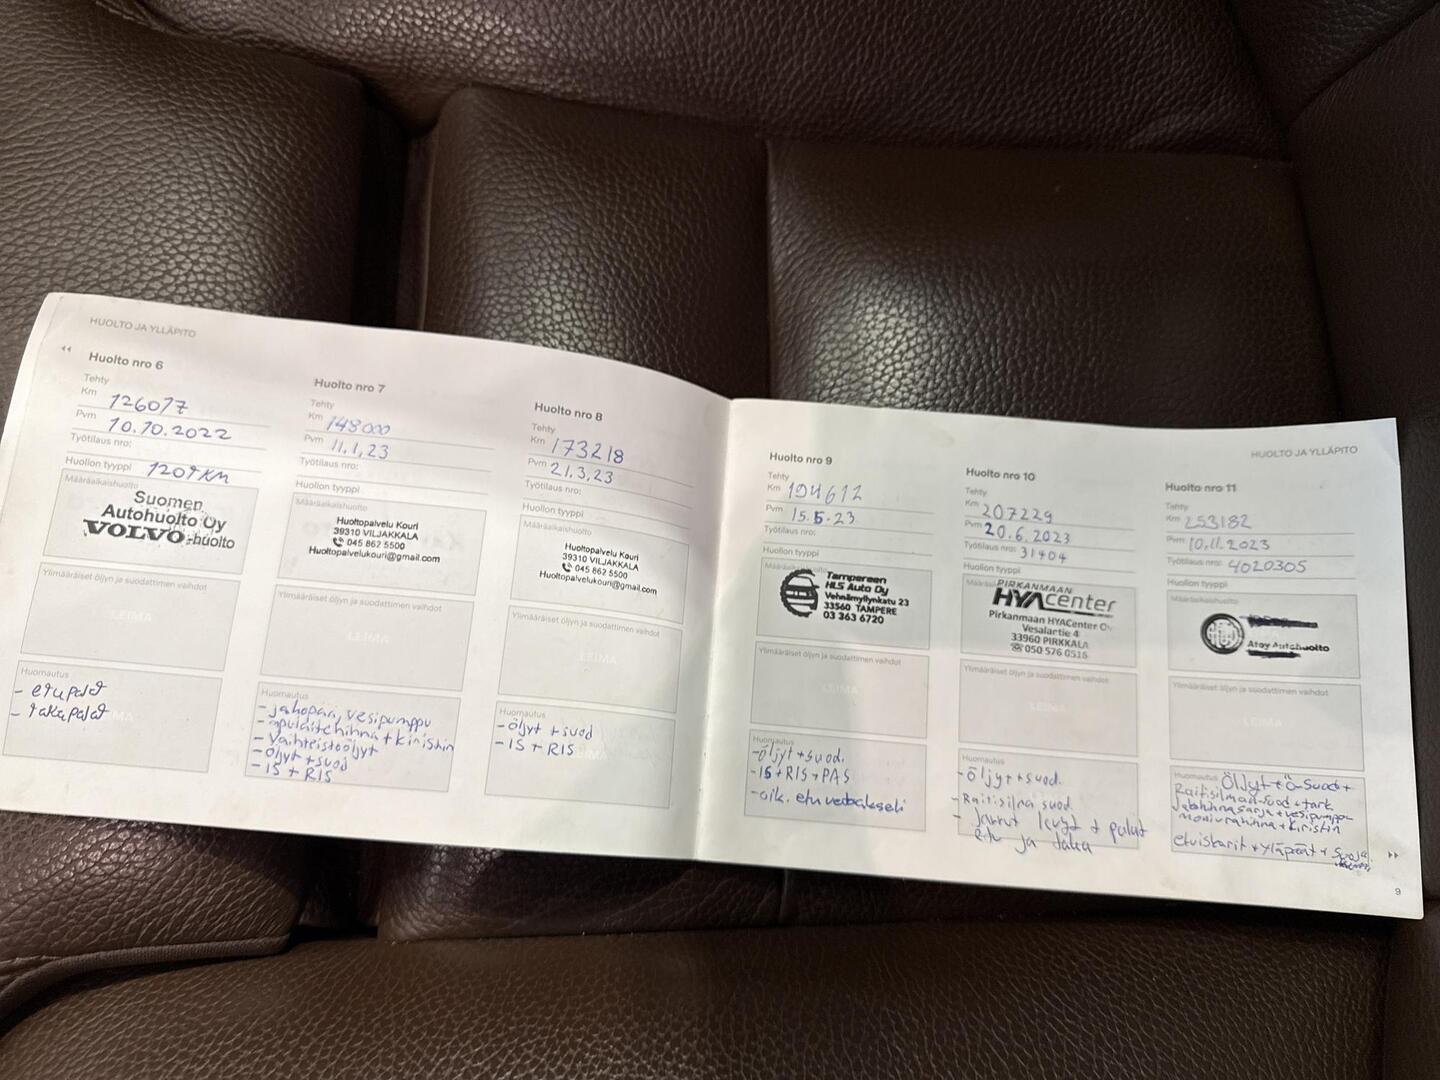 HUOLTO JA YLLÄPITO
Huolto nro 6
Tehty
Km 126017
Pvm 10.10.2022
Työtilaus nro:
Huollon tyyppi 120tKM
Määräaikaishuolto
Suomen
Autohuolto Oy
VOLVO-huolto
Ylimääräiset öljyn ja suodattimen vaihdot
LEIMA
Huomautus
- etupalat
- takapalat
Huolto nro 7
Tehty
Km 148000
Pvm 11.1.23
Työtilaus nro:
Huollon tyyppi
Määräaikaishuolto
Huoltopalvelu Kouri
39310 VILJAKKALA
045 862 5500
Huoltopalvelukouri@gmail.com
Ylimääräiset öljyn ja suodattimen vaihdot
LEIMA
Huomautus
- jakopää, vesipumppu
- apulaitehihna + kiristin
- Vaihteistoöljyt
- öljyt + suod
- IS + RIS
Huolto nro 8
Tehty
Km 173218
Pvm 21.3.23
Työtilaus nro:
Huollon tyyppi
Määräaikaishuolto
Huoltopalvelu Kouri
39310 VILJAKKALA
045 862 5500
Huoltopalvelukouri@gmail.com
Ylimääräiset öljyn ja suodattimen vaihdot
LEIMA
Huomautus
- öljyt + suod
- IS + RIS
HUOLTO JA YLLÄPITO
Huolto nro 9
Tehty
Km 194612
Pvm 15.5.23
Työtilaus nro:
Huollon tyyppi
Tampereen
HLS Auto Oy
Vehnämyllynkatu 23
33560 TAMPERE
03 363 6720
Ylimääräiset öljyn ja suodattimen vaihdot
LEIMA
Huomautus
- öljyt + suod.
- IS + RIS + PAS
- oik. etu vetoakseli
Huolto nro 10
Tehty
Km 207229
Pvm 20.6.2023
Työtilaus nro: 31404
Huollon tyyppi
PIRKANMAAN
HYAcenter
Pirkanmaan HYACenter Oy
Vesalartie 4
33960 PIRKKALA
050 576 0516
Ylimääräiset öljyn ja suodattimen vaihdot
LEIMA
Huomautus
- öljyt + suod.
- Raitisilma suod
- jarrut levyt + palat
etu ja taka
Huolto nro 11
Tehty
Km 253182
Pvm 10.11.2023
Työtilaus nro: 4020305
Huollon tyyppi
Määräaikaishuolto
Atoy Autohuolto
Ylimääräiset öljyn ja suodattimen vaihdot
LEIMA
Huomautus Öljyt + Ö-suod +
Raitisilman-suod + tark
Jakohihnasarja + vesipumppu
moniurahihna + kiristin
etuiskarit + yläpäät + suoja
9